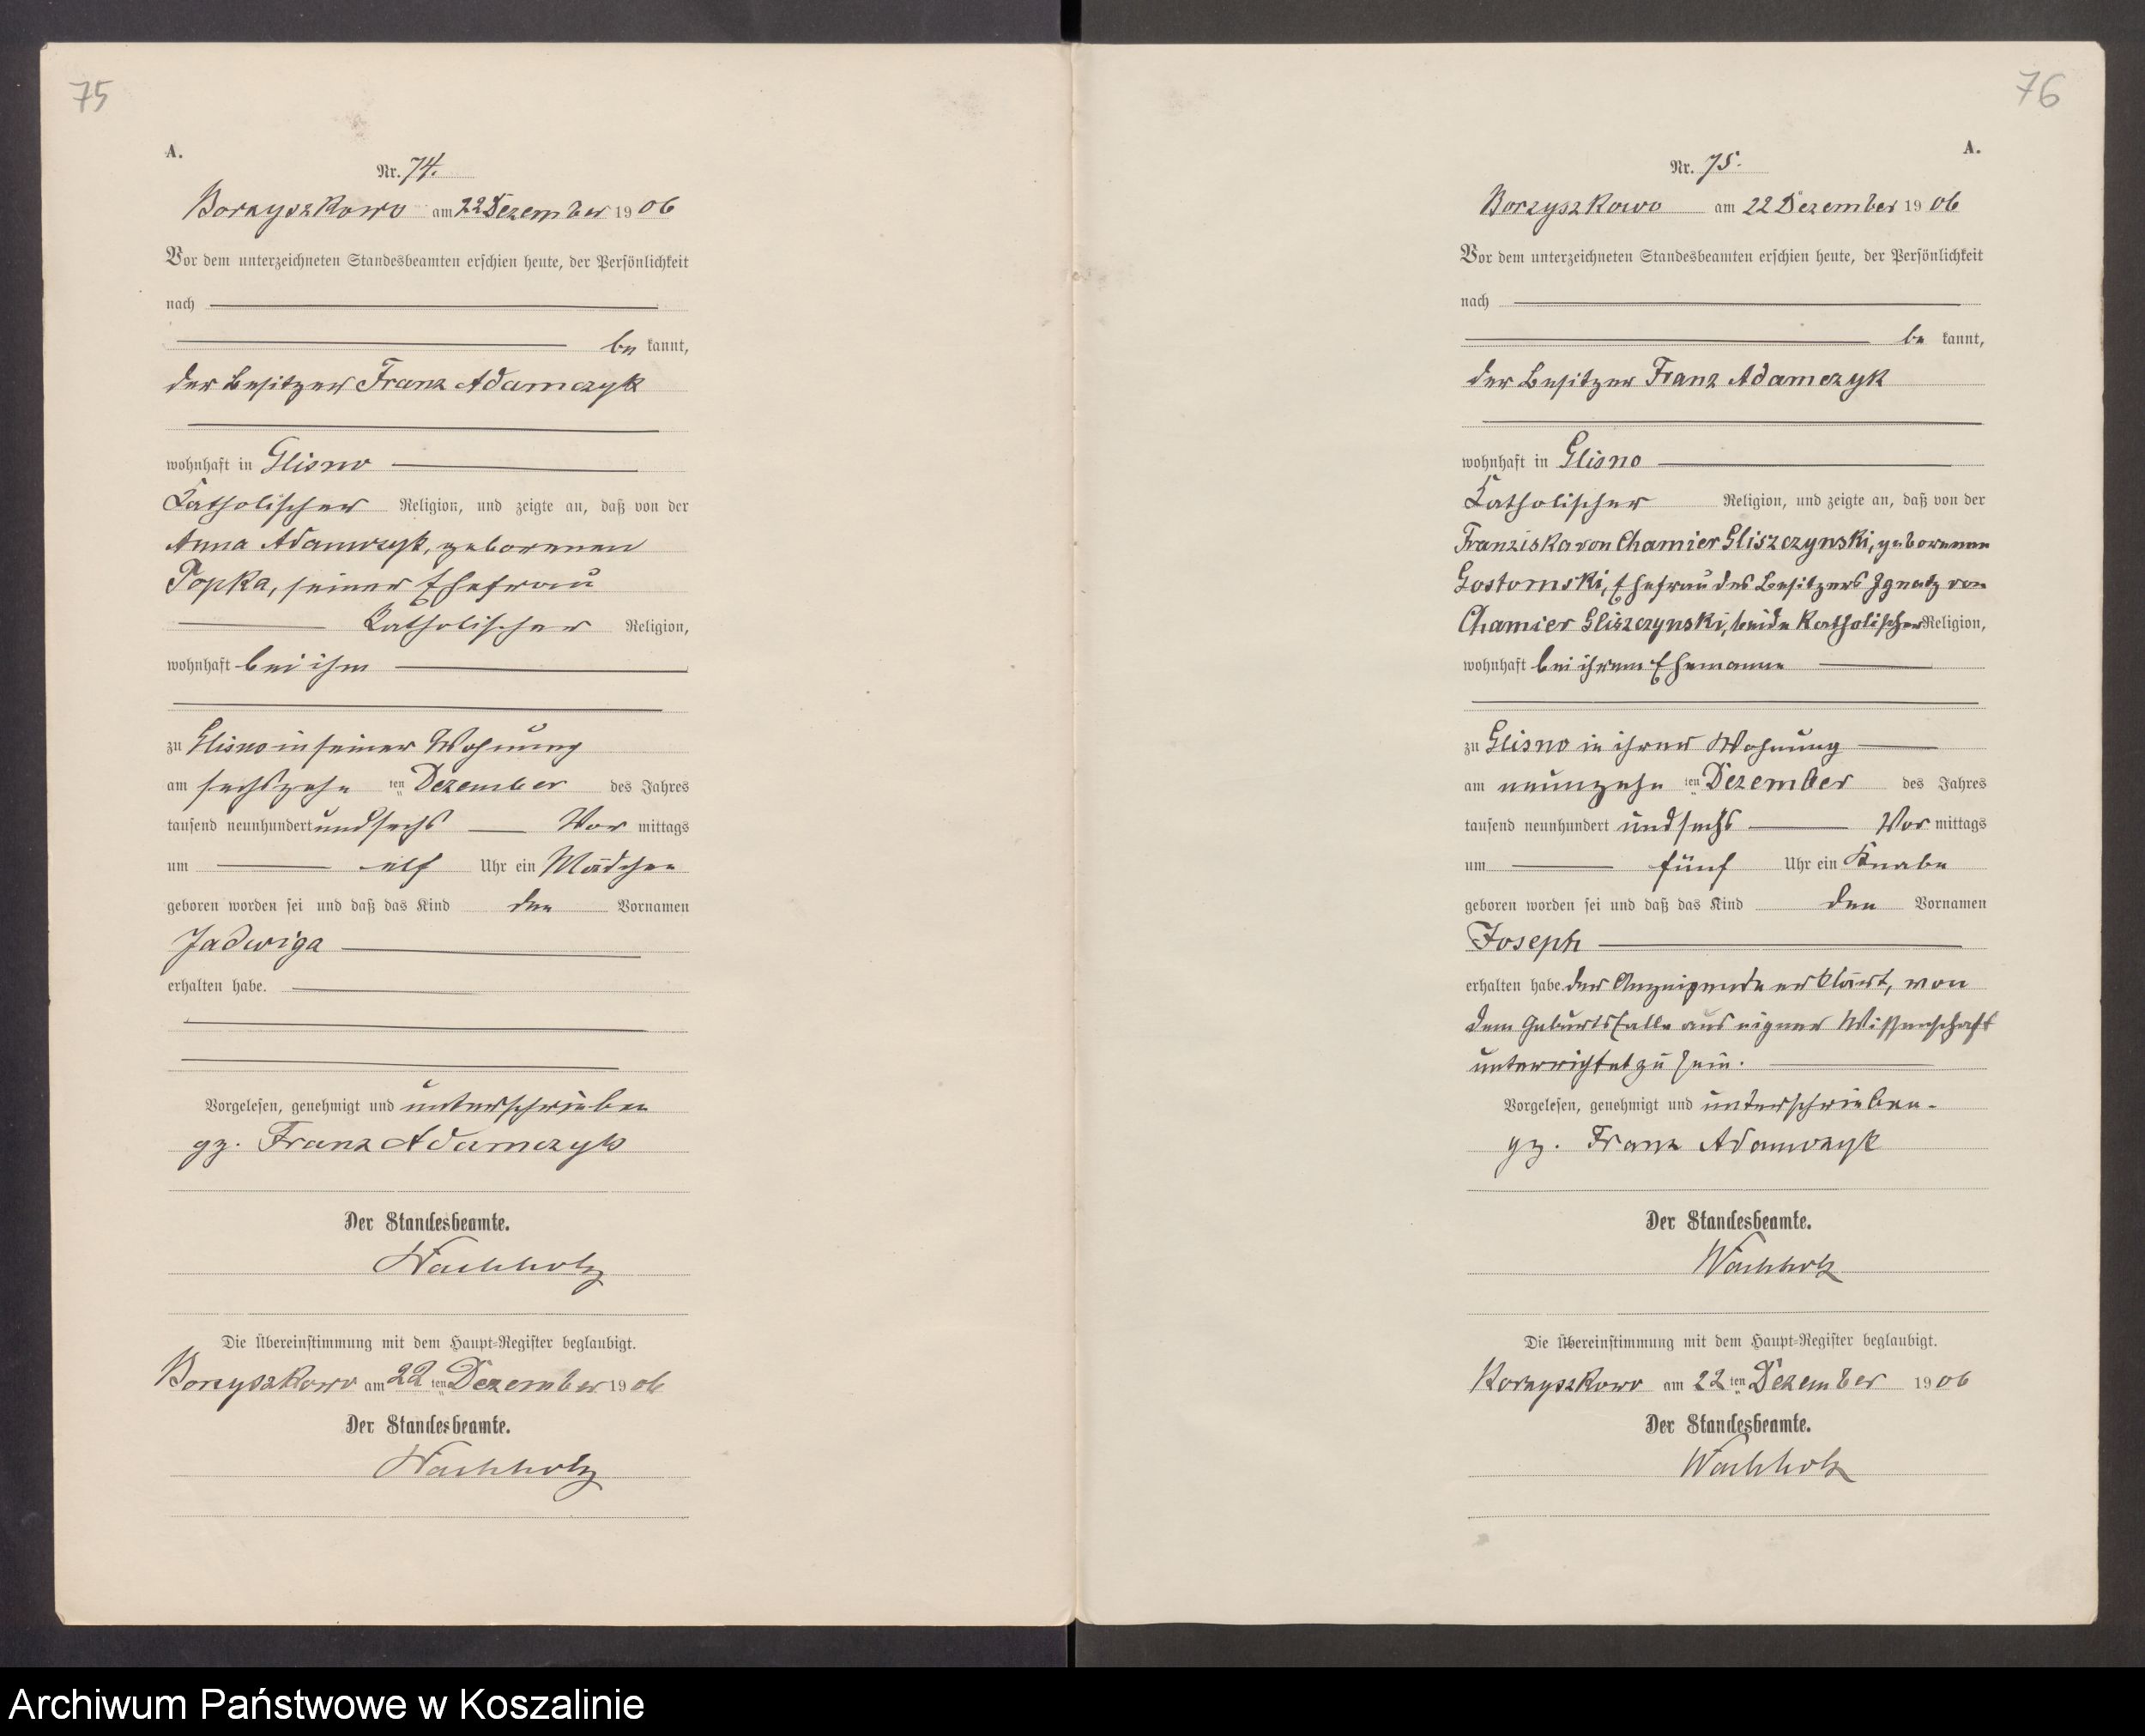 75
A.
Nr. 74.
Borzyszkowo am 22 Dezember 1906
Vor dem unterzeichneten Standesbeamten erschien heute, der Persönlichkeit
nach
be kannt,
der Besitzer Franz Adamczyk
wohnhaft in Glisno
Katholischer Religion, und zeigte an, daß von der
Anna Adamczyk, geborenen
Popka, seiner Ehefrau
Katholischer Religion,
wohnhaft bei ihm
zu Glisno in seiner Wohnung
am sechszehn ten Dezember des Jahres
tausend neunhundert und sechs Vor mittags
um elf Uhr ein Mädchen
geboren worden sei und daß das Kind den Vornamen
Jadwiga
erhalten habe.
Vorgelesen, genehmigt und unterschrieben
gz. Franz Adamczyk
Der Standesbeamte.
Wachholz
Die Übereinstimmung mit dem Haupt-Register beglaubigt.
Borzyszkowo am 22 ten Dezember 1906
Der Standesbeamte.
Wachholz
76
A.
Nr. 75.
Borzyszkowo am 22 Dezember 1906
Vor dem unterzeichneten Standesbeamten erschien heute, der Persönlichkeit
nach
be kannt,
der Besitzer Franz Adamczyk
wohnhaft in Glisno
Katholischer Religion, und zeigte an, daß von der
Franziska von Chamier Gliszczynski, geborenen
Gostomski, Ehefrau des Besitzers Ignatz von
Chamier Gliszczynski, beide Katholischer Religion,
wohnhaft bei ihrem Ehemanne
zu Glisno in ihrer Wohnung
am neunzehn ten Dezember des Jahres
tausend neunhundert und sechs Vor mittags
um fünf Uhr ein Knabe
geboren worden sei und daß das Kind den Vornamen
Joseph
erhalten habe. der Anzeigende erklärt, von
dem Geburtsfalle aus eigner Wissenschaft
unterrichtet zu sein.
Vorgelesen, genehmigt und unterschrieben.
gz. Franz Adamczyk
Der Standesbeamte.
Wachholz
Die Übereinstimmung mit dem Haupt-Register beglaubigt.
Borzyszkowo am 22 ten Dezember 1906
Der Standesbeamte.
Wachholz
Archiwum Państwowe w Koszalinie